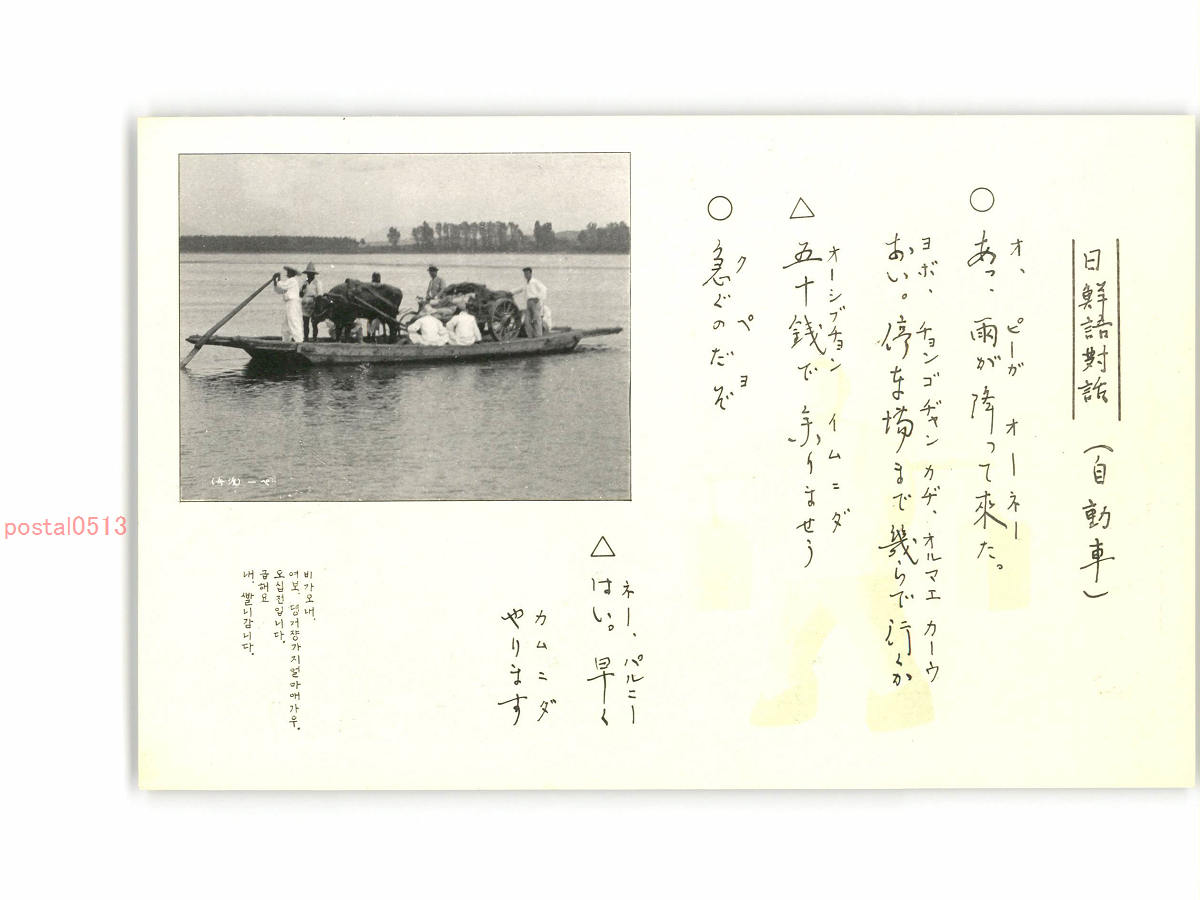 日鮮語對話 (自動車)
オ、 ピーガ オーネー
○ あっ、雨が降って來た。
ヨボ、チョンゴヂャン カヂ、オルマエ カーウ
おい。停車場まで幾らで行くか
オーシブチョン イムニダ
△ 五十錢で參りませう
クペヨ
○ 急ぐのだぞ
ネー、パルニー
△ はい。早く
カムニダ
やります
비가오내.
여보. 뎡거쟝가지얼마애가우.
오십전입니다.
급해요
내. 빨니감니다.
postal0513